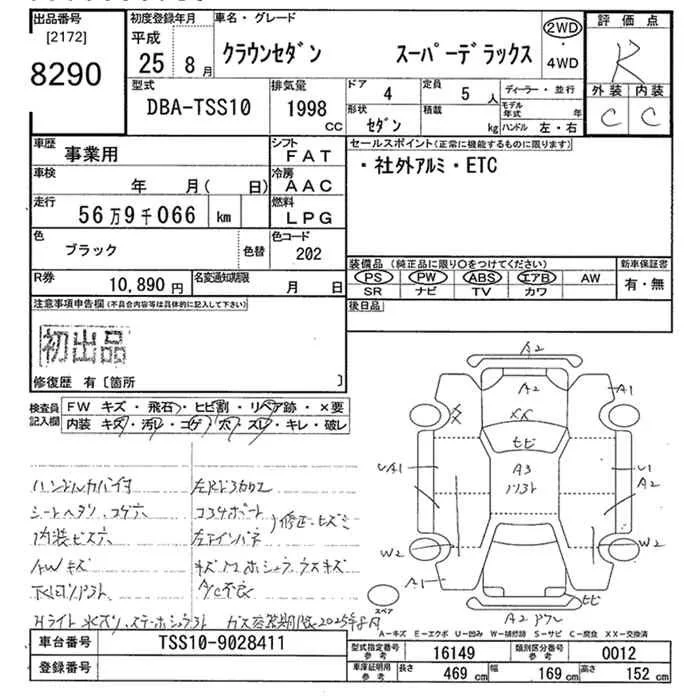 出品番号 初度登録年月 車名・グレード 評価点
[2172] 平成 2WD
8290 25 8月 クラウンセダン スーパーデラックス ・ R
4WD
型式 排気量 ドア 4 定員 5人 ディーラー・並行 外装 内装
DBA-TSS10 1998 CC 形状 セダン 積載 kg モデル年式 年 C C
ハンドル 左・右
車歴 事業用 シフト FAT セールスポイント(正常に機能するものに限ります)
車検 年 月( 日) 冷房 AAC ・社外アルミ・ETC
走行 56万9千066 km 燃料 LPG
色 ブラック 色替 色コード 202
装備品(純正品に限り○をつけてください) 新車保証書
R券 10,890円 名変通知期限 月 日 PS PW ABS エアB AW 有・無
SR ナビ TV カワ
注意事項申告欄(不具合内容等は具体的に記入して下さい) 後日品
初出品
修復歴 有〔箇所 〕
検査員記入欄 FW キズ・飛石・ヒビ割・リペア跡・×要
内装 キズ・汚レ・コゲ・穴・スレ・キレ・破レ
ハンドルカバー付
シートヘタリ、コゲ穴
内装ビス穴
AWキズ
A/C不良
ガス容器期限2025年8月
A2
A2
A1
XX
ヒビ
UA1
A3
U1
A2
W2
W2
A1
ヒビ
スペア
A2
A-キズ E-エクボ U-凹み W-補修跡 S-サビ C-腐食 XX-交換済
車台番号 TSS10-9028411 型式指定番号 参考 16149 類別区分番号 参考 0012
登録番号 車庫証明用 参考 長さ 469 cm 幅 169 cm 高さ 152 cm